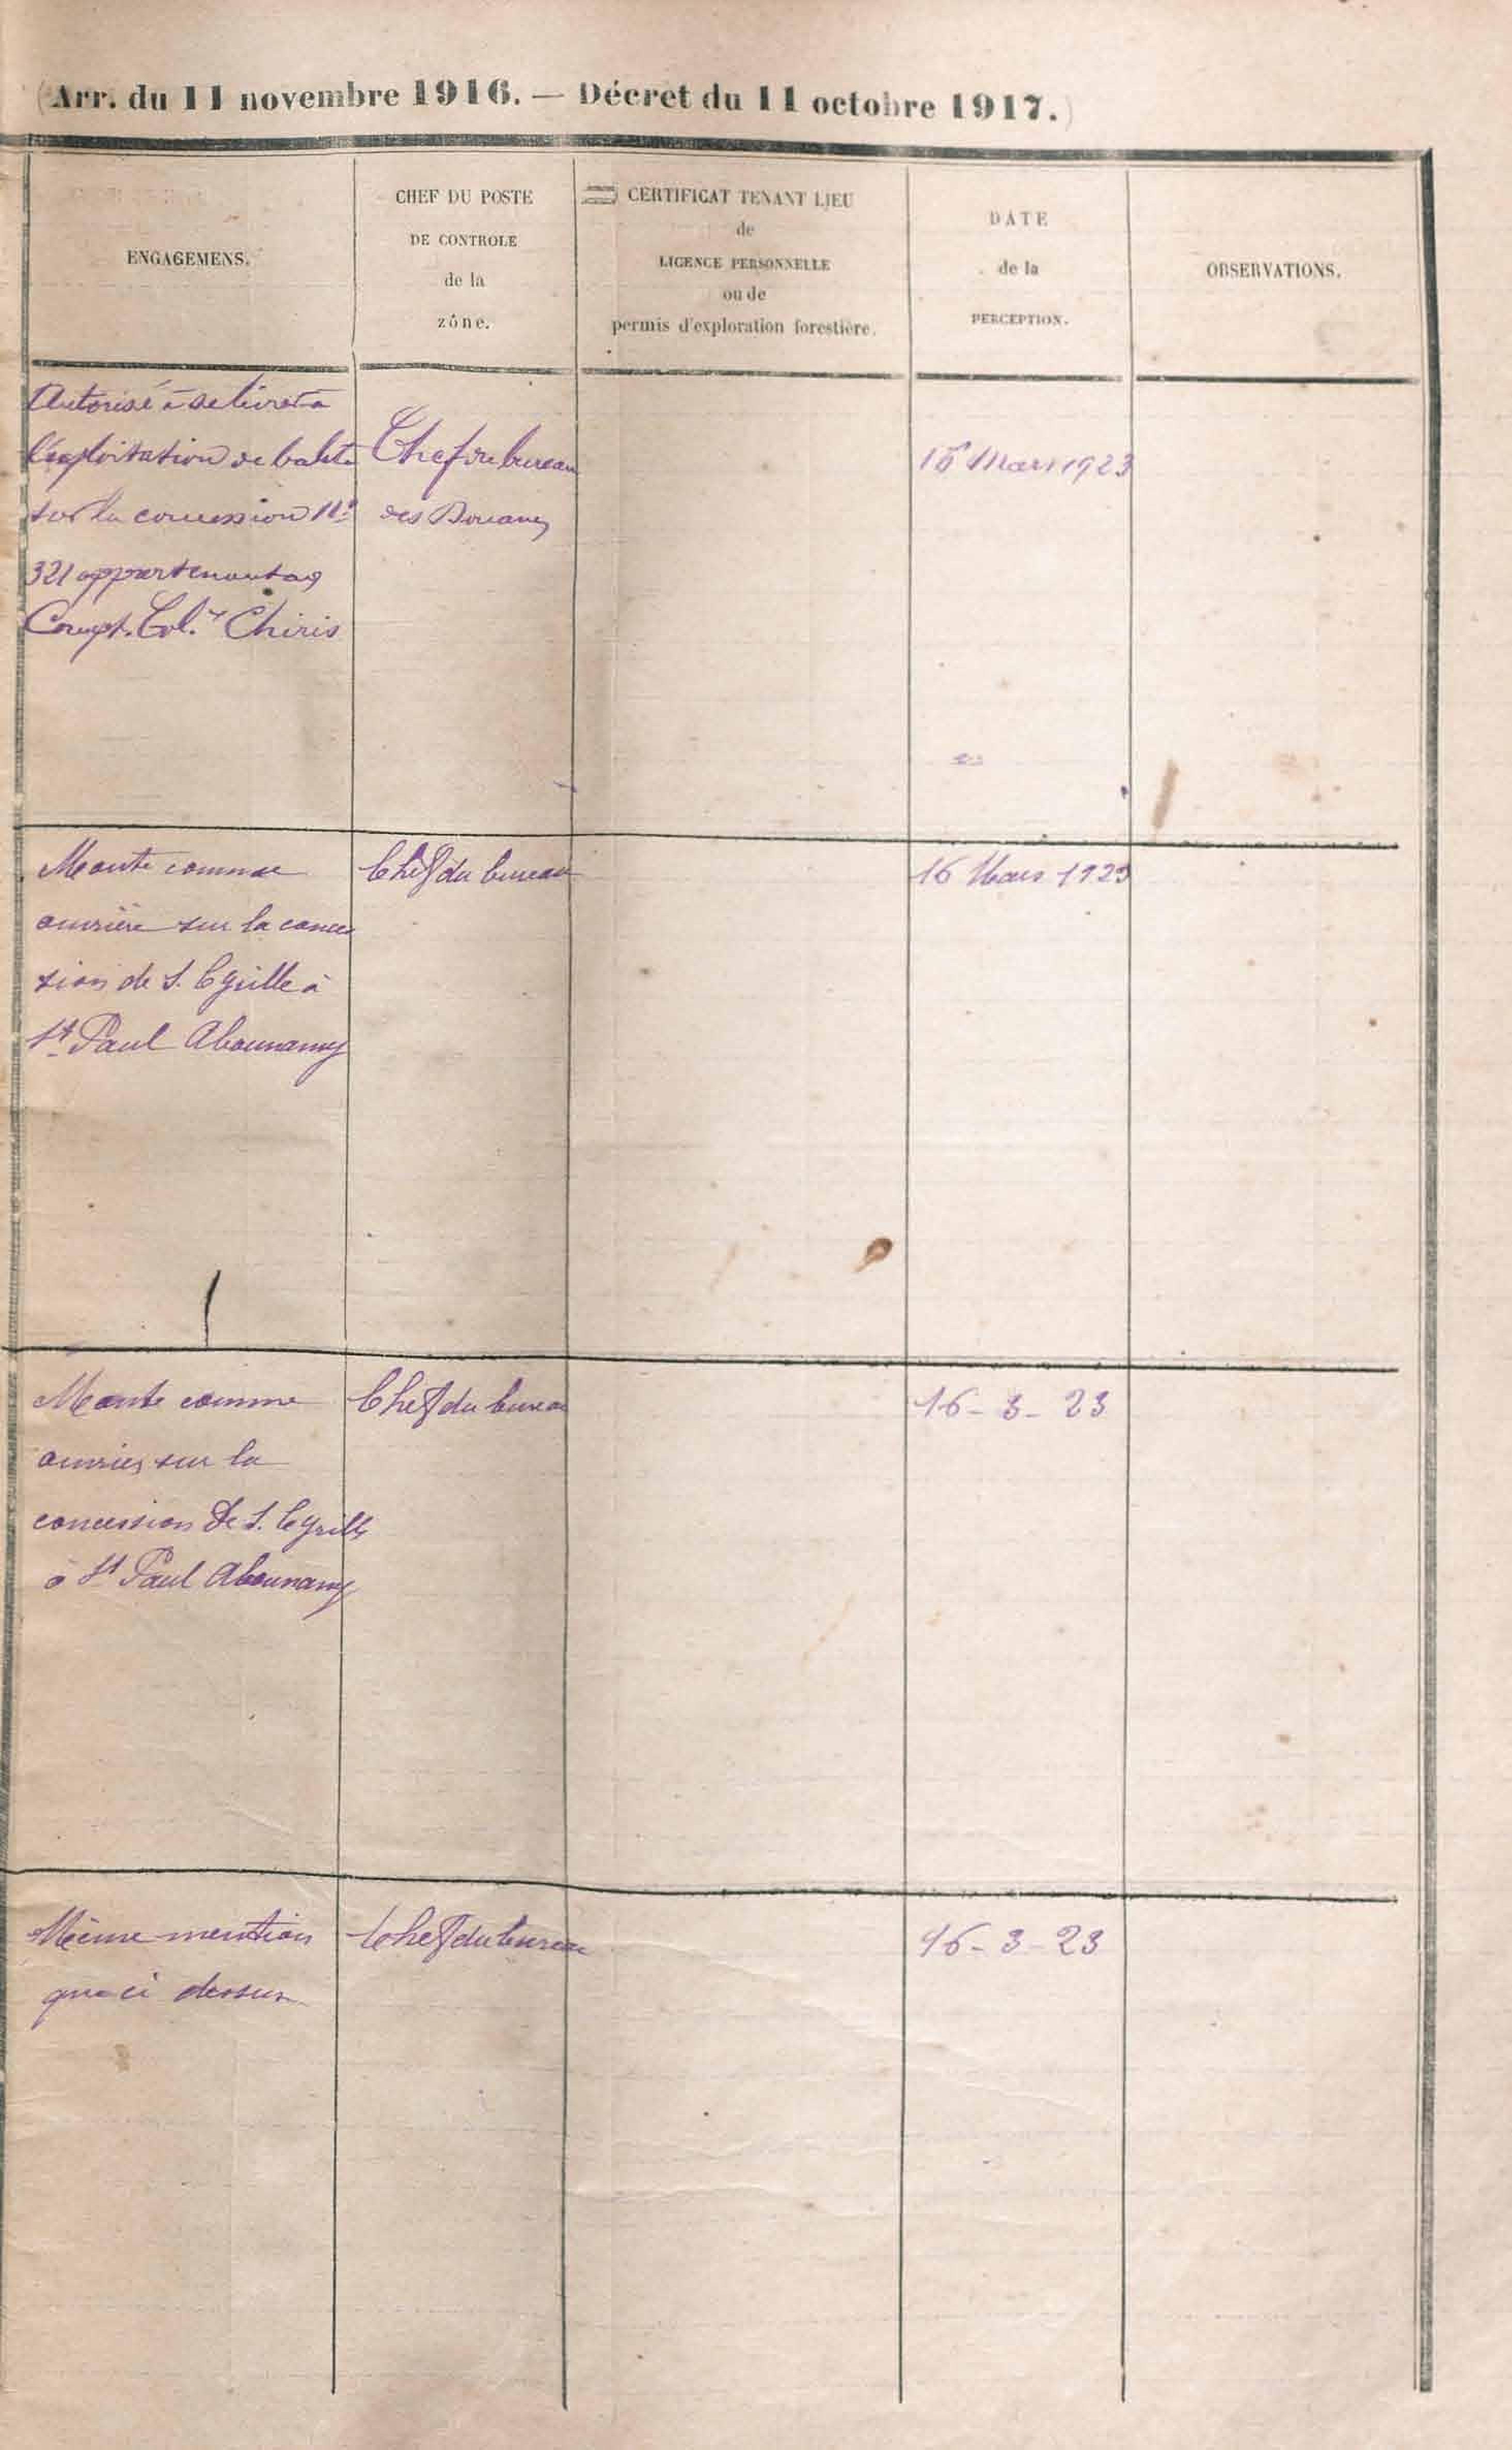 (Arr. du 11 novembre 1916. — Décret du 11 octobre 1917.)
ENGAGEMENS.
CHEF DU POSTE
DE CONTROLE
de la
zône.
CERTIFICAT TENANT LIEU
de
LICENCE PERSONNELLE
ou de
permis d'exploration forestière.
DATE
de la
PERCEPTION.
OBSERVATIONS.
Autorisé à se livrer à
l'exploitation de balata
sur la concession No
321 appartenant aux
Compt. Col.x Chiris
Chef du bureau
des Douanes
16 Mars 1923
Monte comme
ouvrière sur la conces
sion de S. Cyrille à
St Paul Abounamy
Chef du bureau
16 Mars 1923
Monte comme
ouvrier sur la
concession de S. Cyrille
à St Paul Abounamy
Chef du bureau
16-3-23
Même mention
que ci dessus
Chef du bureau
16-3-23